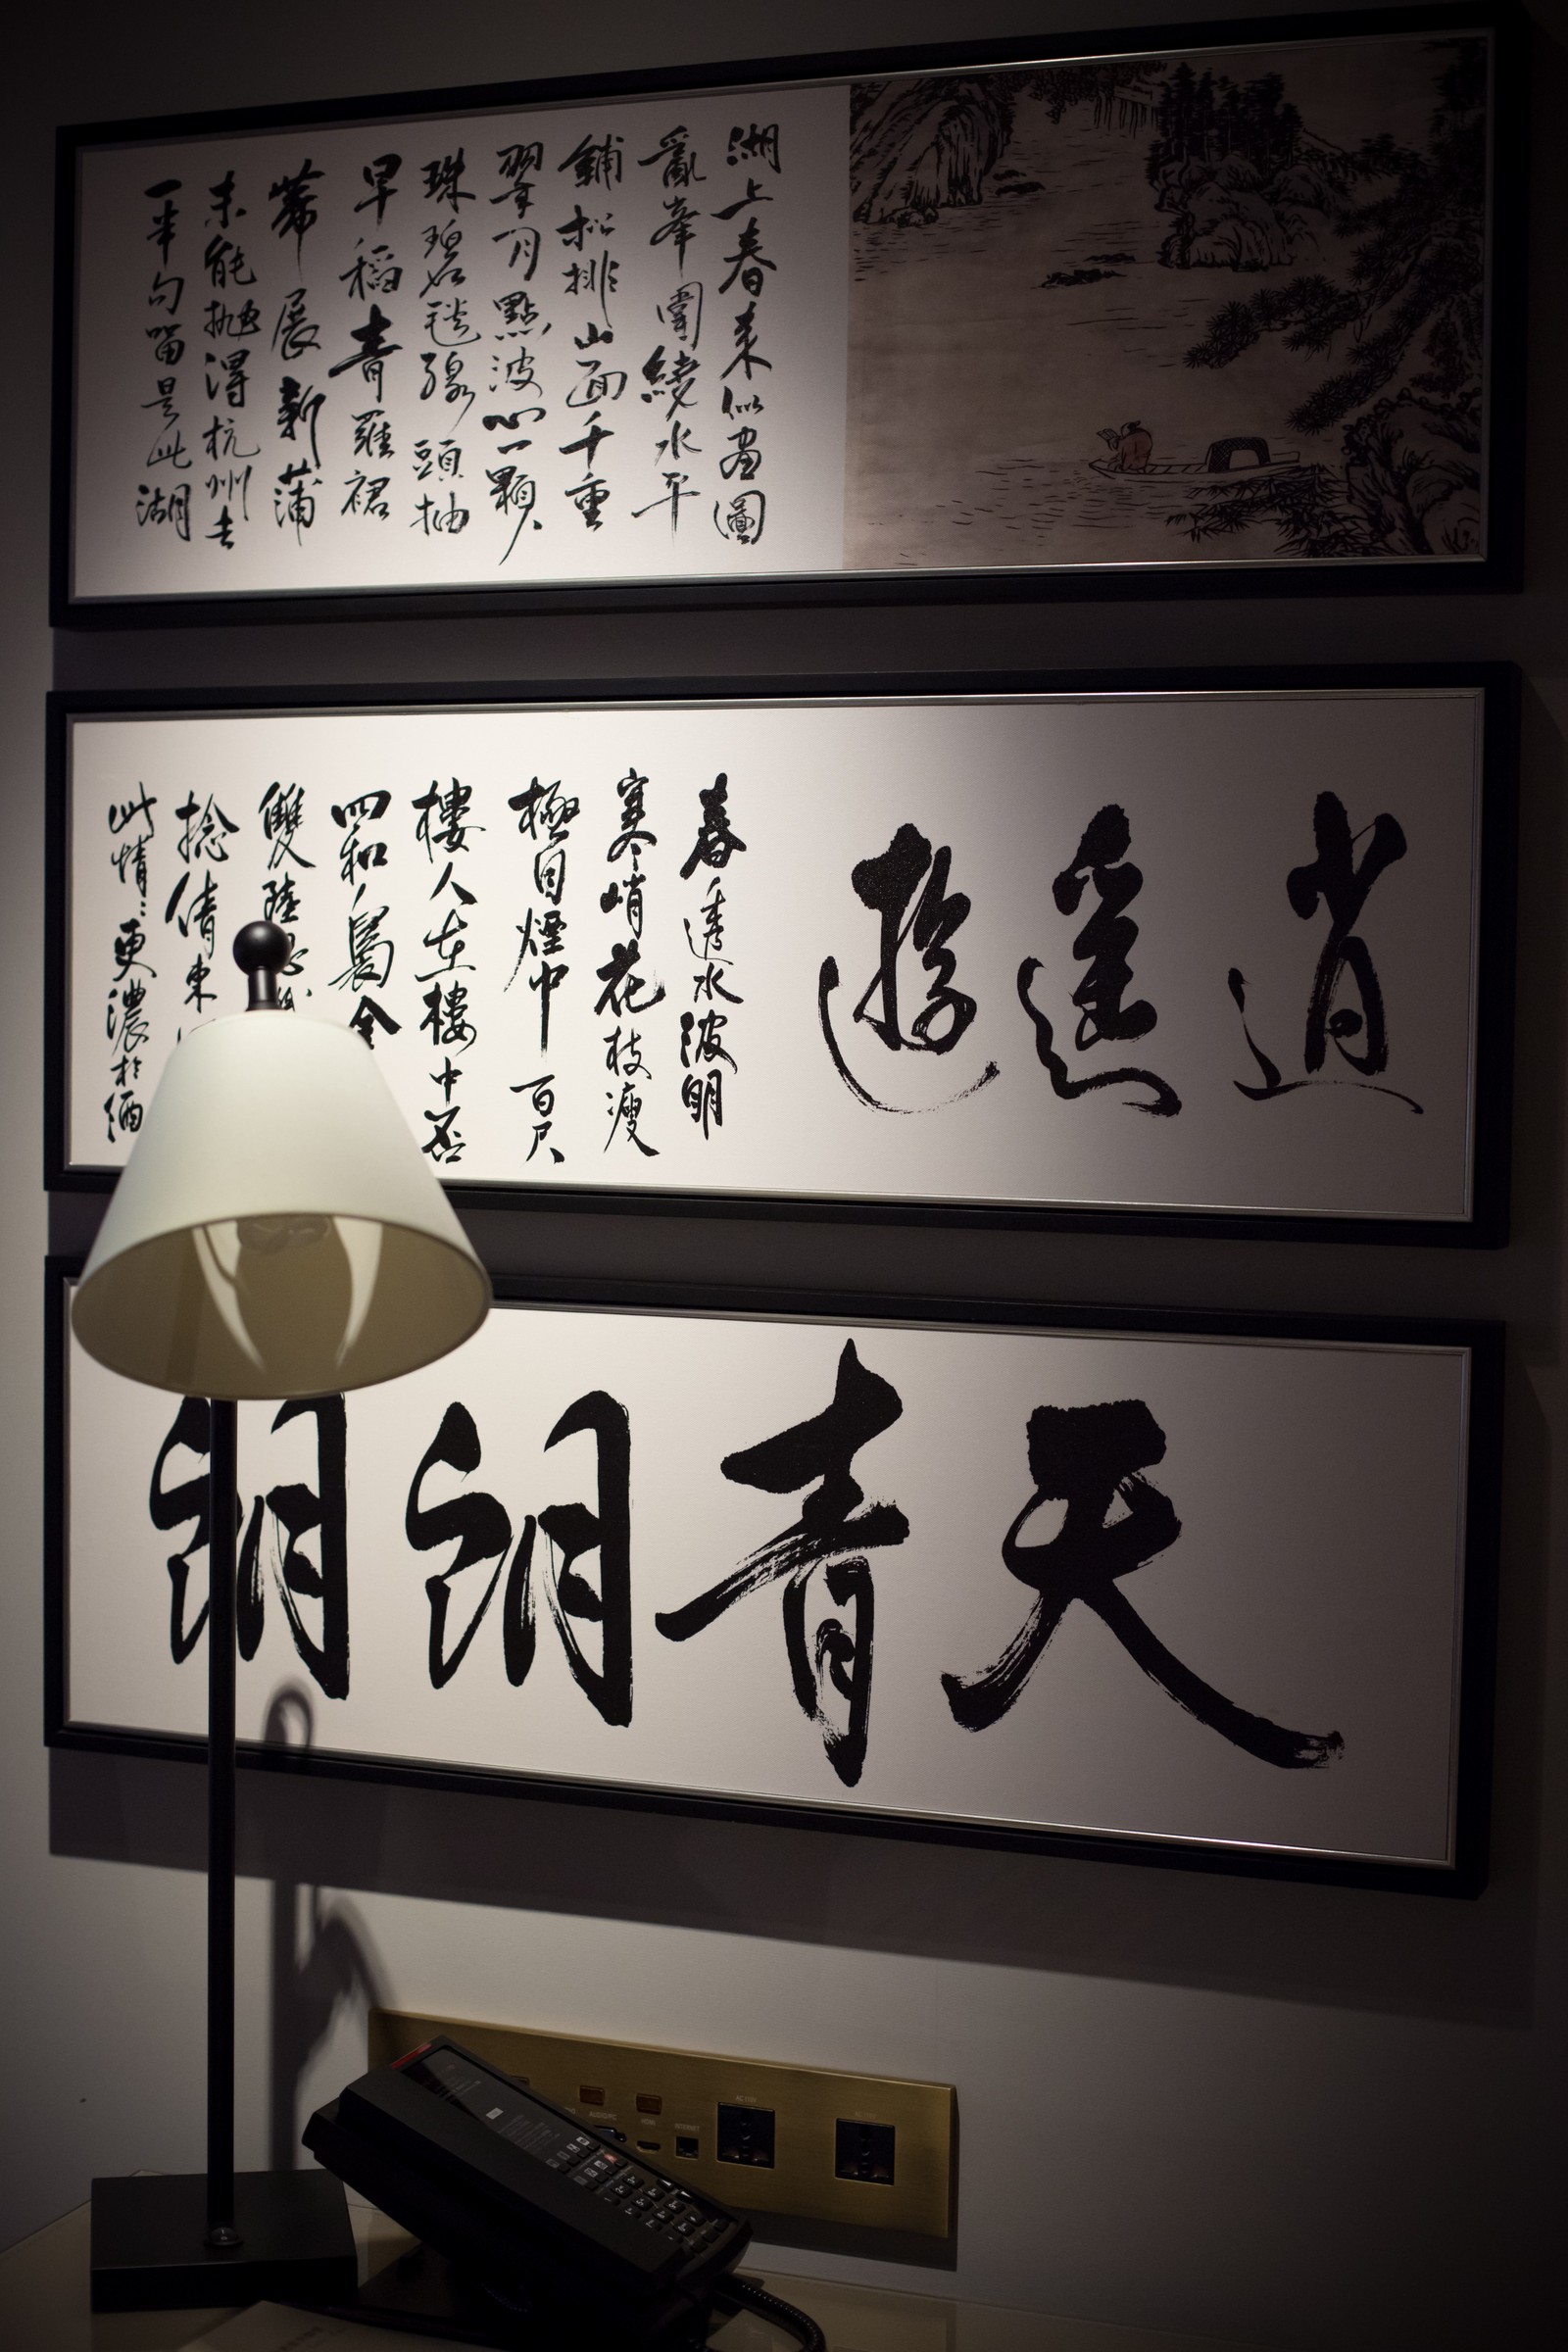 湖上春來似畫圖
亂峯圍繞水平
鋪松排山面千重
翠月點波心一顆
珠碧毯線頭抽
早稻青羅裙
帶展新蒲
未能拋得杭州去
一半勾留是此湖
逍遙遊
春透水波明
寒峭花枝瘦
極目煙中百尺
樓人在樓中否
四和裊金
雙陸思
捻倩東
此情〻更濃於酒
天青朗朗
AUDIO/PC HDMI INTERNET